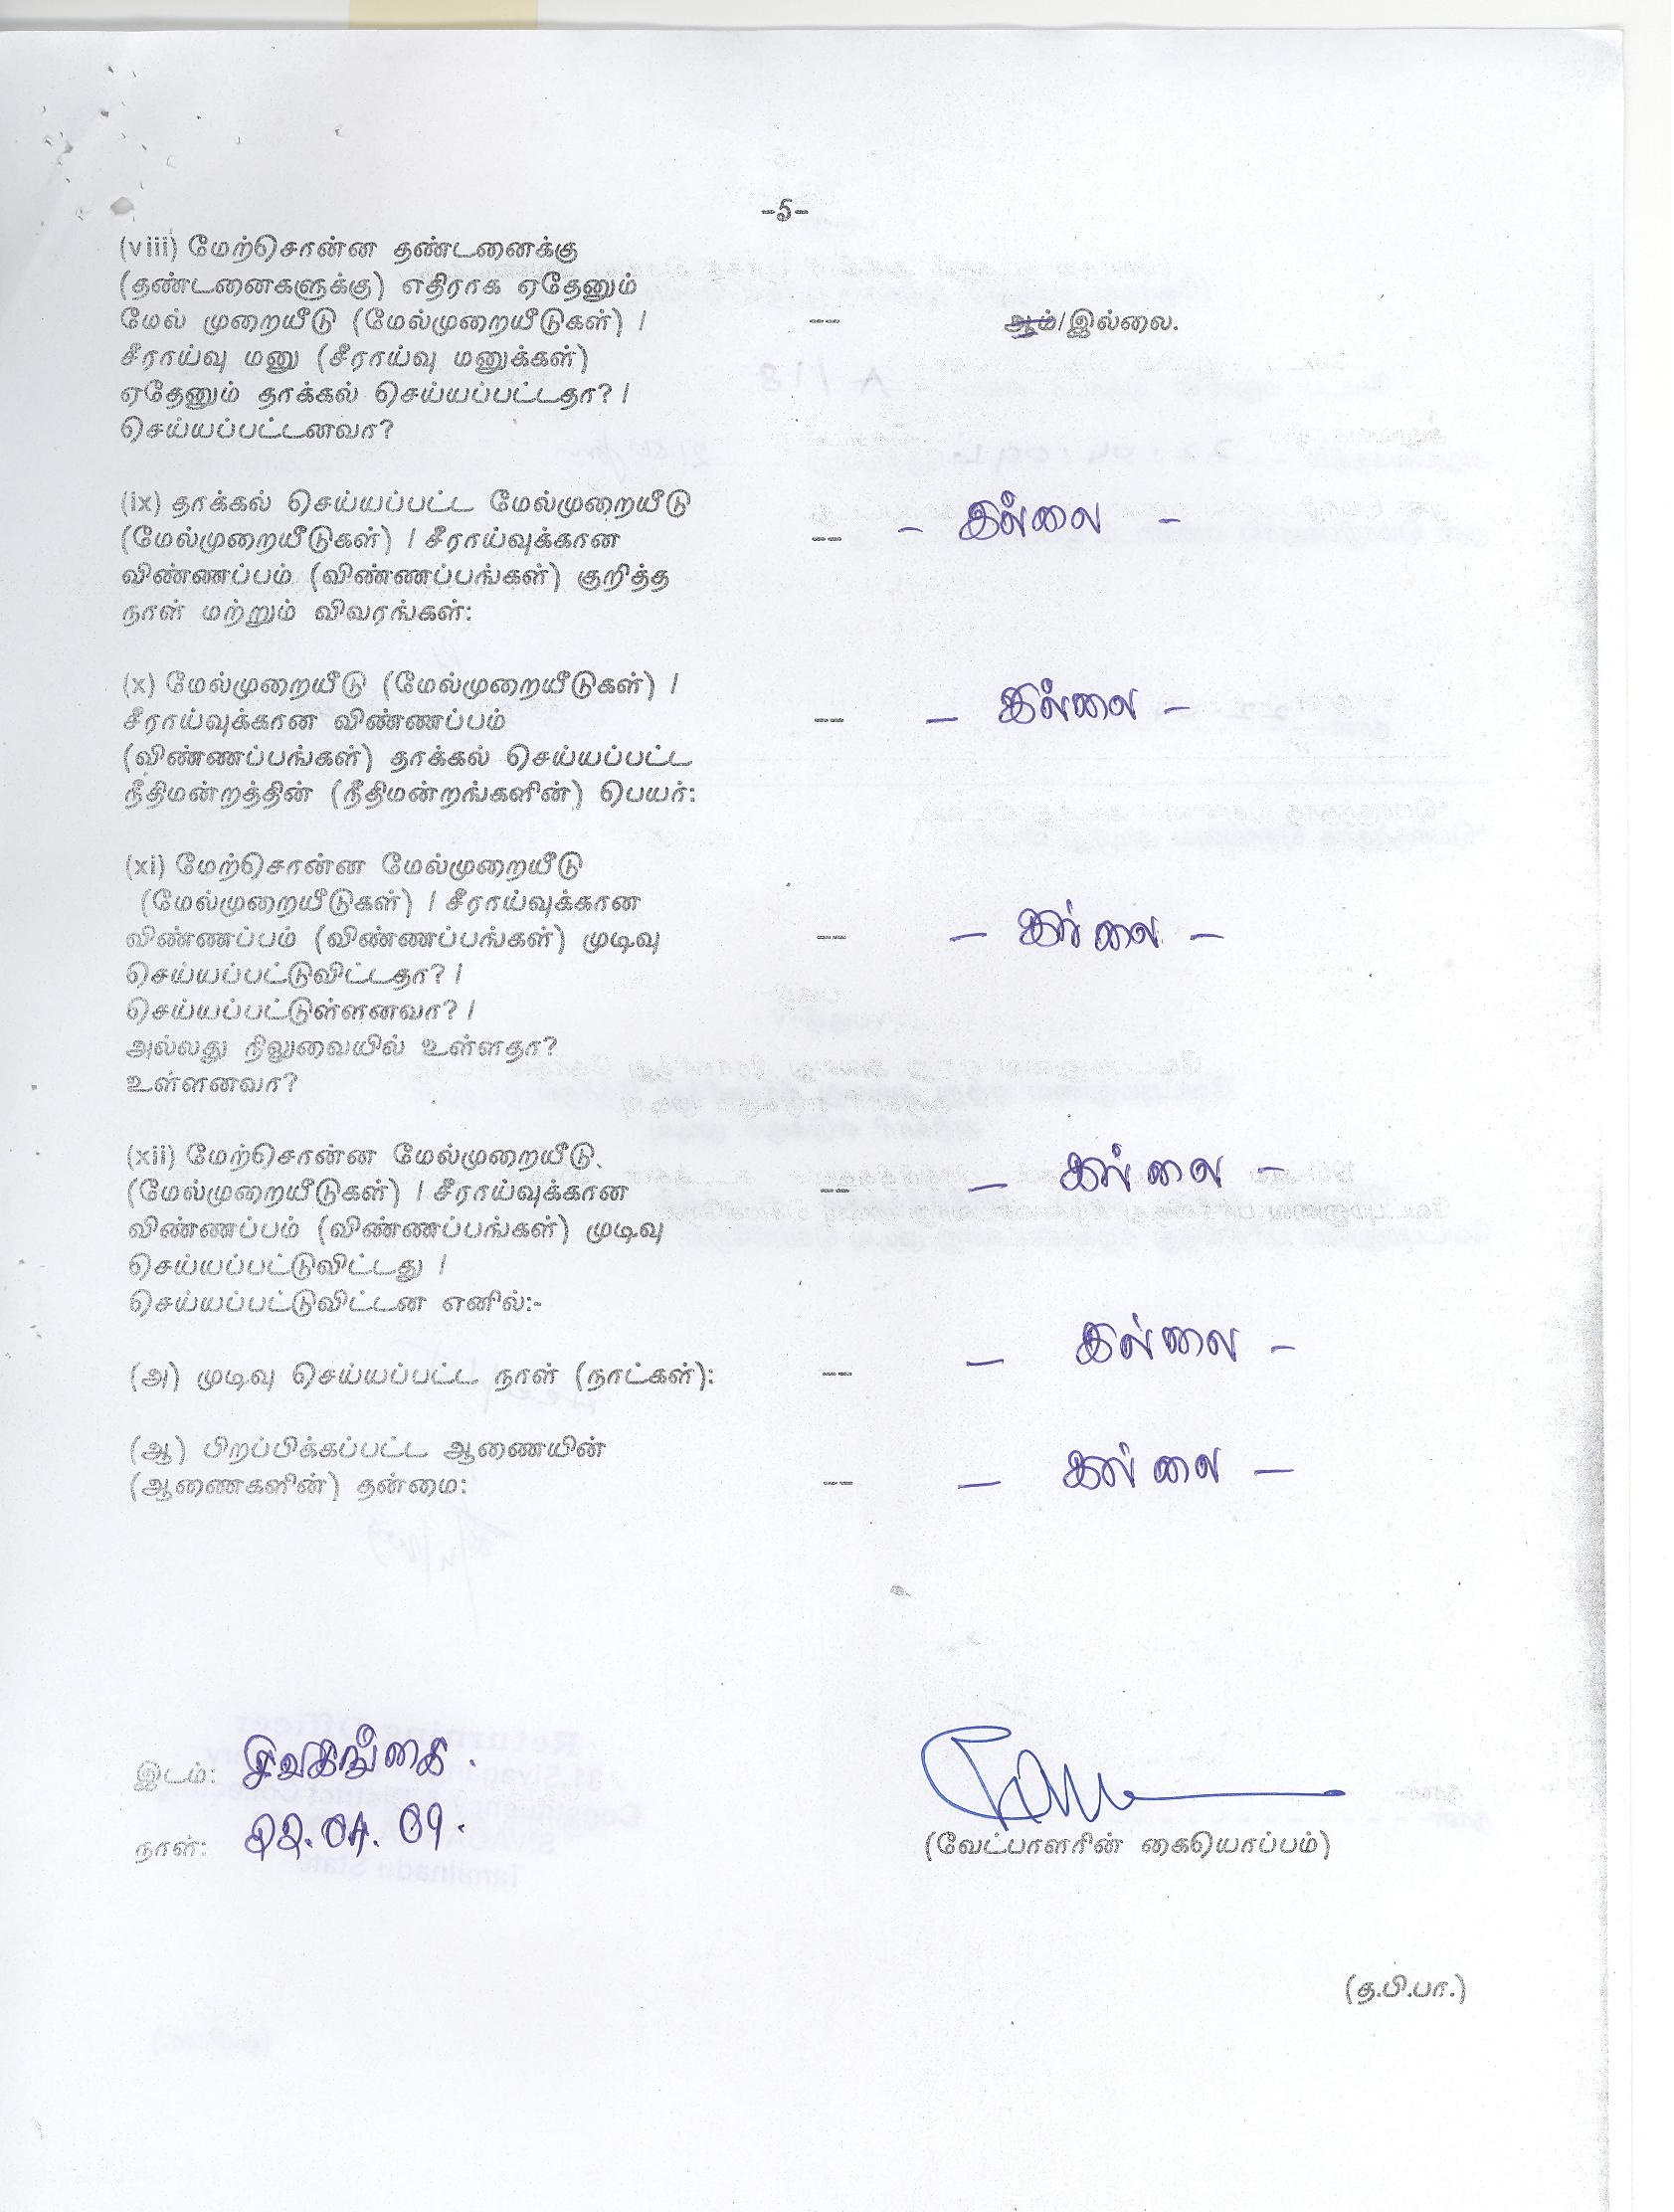 -5-
(viii) மேற்சொன்ன தண்டனைக்கு
(தண்டனைகளுக்கு) எதிராக ஏதேனும்
மேல் முறையீடு (மேல்முறையீடுகள்) / -- ஆம்/இல்லை.
சீராய்வு மனு (சீராய்வு மனுக்கள்)
ஏதேனும் தாக்கல் செய்யப்பட்டதா? /
செய்யப்பட்டனவா?
(ix) தாக்கல் செய்யப்பட்ட மேல்முறையீடு
(மேல்முறையீடுகள்) / சீராய்வுக்கான -- - இல்லை -
விண்ணப்பம் (விண்ணப்பங்கள்) குறித்த
நாள் மற்றும் விவரங்கள்:
(x) மேல்முறையீடு (மேல்முறையீடுகள்) /
சீராய்வுக்கான விண்ணப்பம் -- - இல்லை -
(விண்ணப்பங்கள்) தாக்கல் செய்யப்பட்ட
நீதிமன்றத்தின் (நீதிமன்றங்களின்) பெயர்:
(xi) மேற்சொன்ன மேல்முறையீடு
(மேல்முறையீடுகள்) / சீராய்வுக்கான
விண்ணப்பம் (விண்ணப்பங்கள்) முடிவு -- - இல்லை -
செய்யப்பட்டுவிட்டதா? /
செய்யப்பட்டுள்ளனவா? /
அல்லது நிலுவையில் உள்ளதா?
உள்ளனவா?
(xii) மேற்சொன்ன மேல்முறையீடு
(மேல்முறையீடுகள்) / சீராய்வுக்கான -- - இல்லை -
விண்ணப்பம் (விண்ணப்பங்கள்) முடிவு
செய்யப்பட்டுவிட்டது /
செய்யப்பட்டுவிட்டன எனில்:-
(அ) முடிவு செய்யப்பட்ட நாள் (நாட்கள்): -- - இல்லை -
(ஆ) பிறப்பிக்கப்பட்ட ஆணையின்
(ஆணைகளின்) தன்மை: -- - இல்லை -
இடம்: சிவகங்கை.
நாள்: 22.04.09.
(வேட்பாளரின் கையொப்பம்)
(த.பி.பா.)